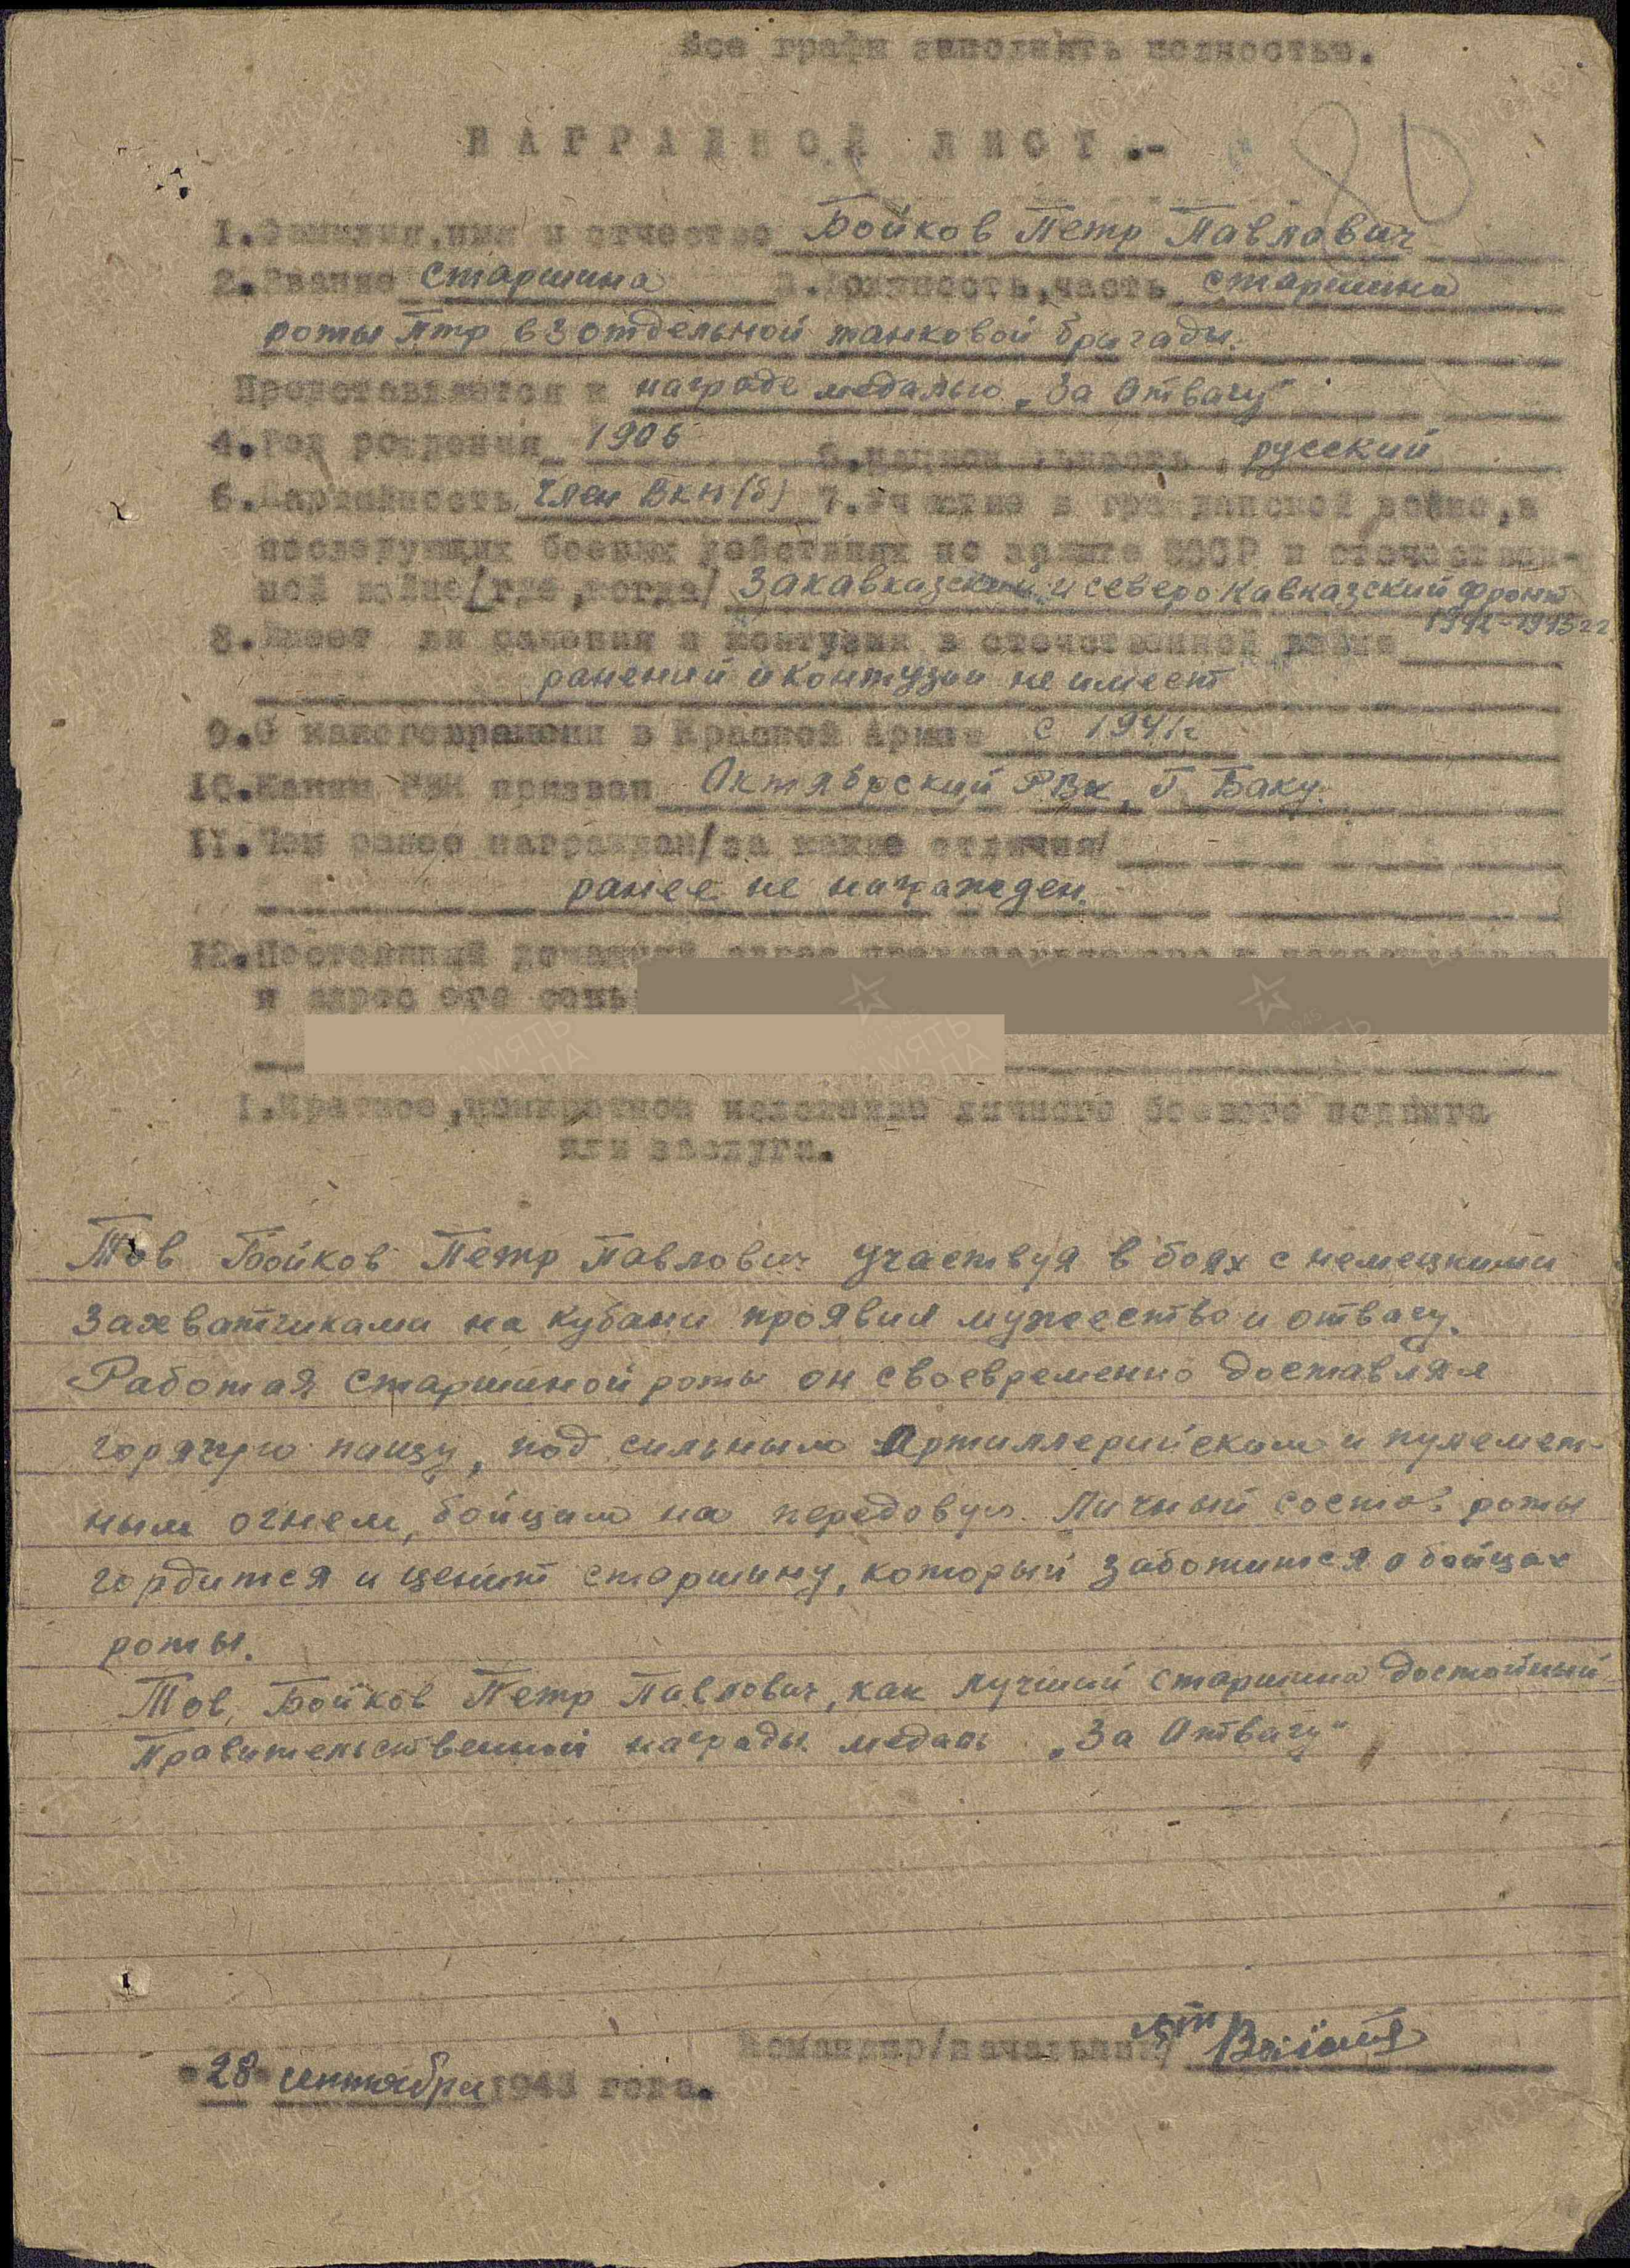 Все графы заполнять полностью.
80
НАГРАДНОЙ ЛИСТ.-
1.Фамилия,имя и отчество Бойков Петр Павлович
2.Звание старшина 3.Должность,часть старшина
роты Птр 63 отдельной танковой бригады.
Представляется к награде медалью „За Отвагу"
4.Год рождения 1906 5.национальность русский
6.Партийность член ВКП(б) 7.Участие в гражданской войне,в
последующих боевых действиях по защите СССР и отечествен-
ной войне/где,когда/ Закавказский и северо Кавказский фронт
1942-1943гг
8.Имеет ли ранения и контузии в отечественной войне
ранений и контузии не имеет
9.С какого времени в Красной Армии с 1941г
10.Каким РВК призван Октябрский РВК, г. Баку.
11.Чем ранее награжден/за какие отличия/
ранее не награжден.
12.Постоянный домашний адрес
и адрес его семьи
1.Краткое,конкретное изложение личного боевого подвига
или заслуги.
Тов Бойков Петр Павлович участвуя в боях с немецкими
захватчиками на Кубани проявил мужество и отвагу.
Работая старшиной роты он своевременно доставлял
горячую пищу, под сильным Артиллерийским и пулемет-
ным огнем, бойцам на передовую. Личный состав роты
гордится и ценит старшину, который заботится о бойцах
роты.
Тов. Бойков Петр Павлович, как лучший старшина достойный
Правительственной награды медаль „За Отвагу"
Командир/начальник/
"28" сентября 1943 года.